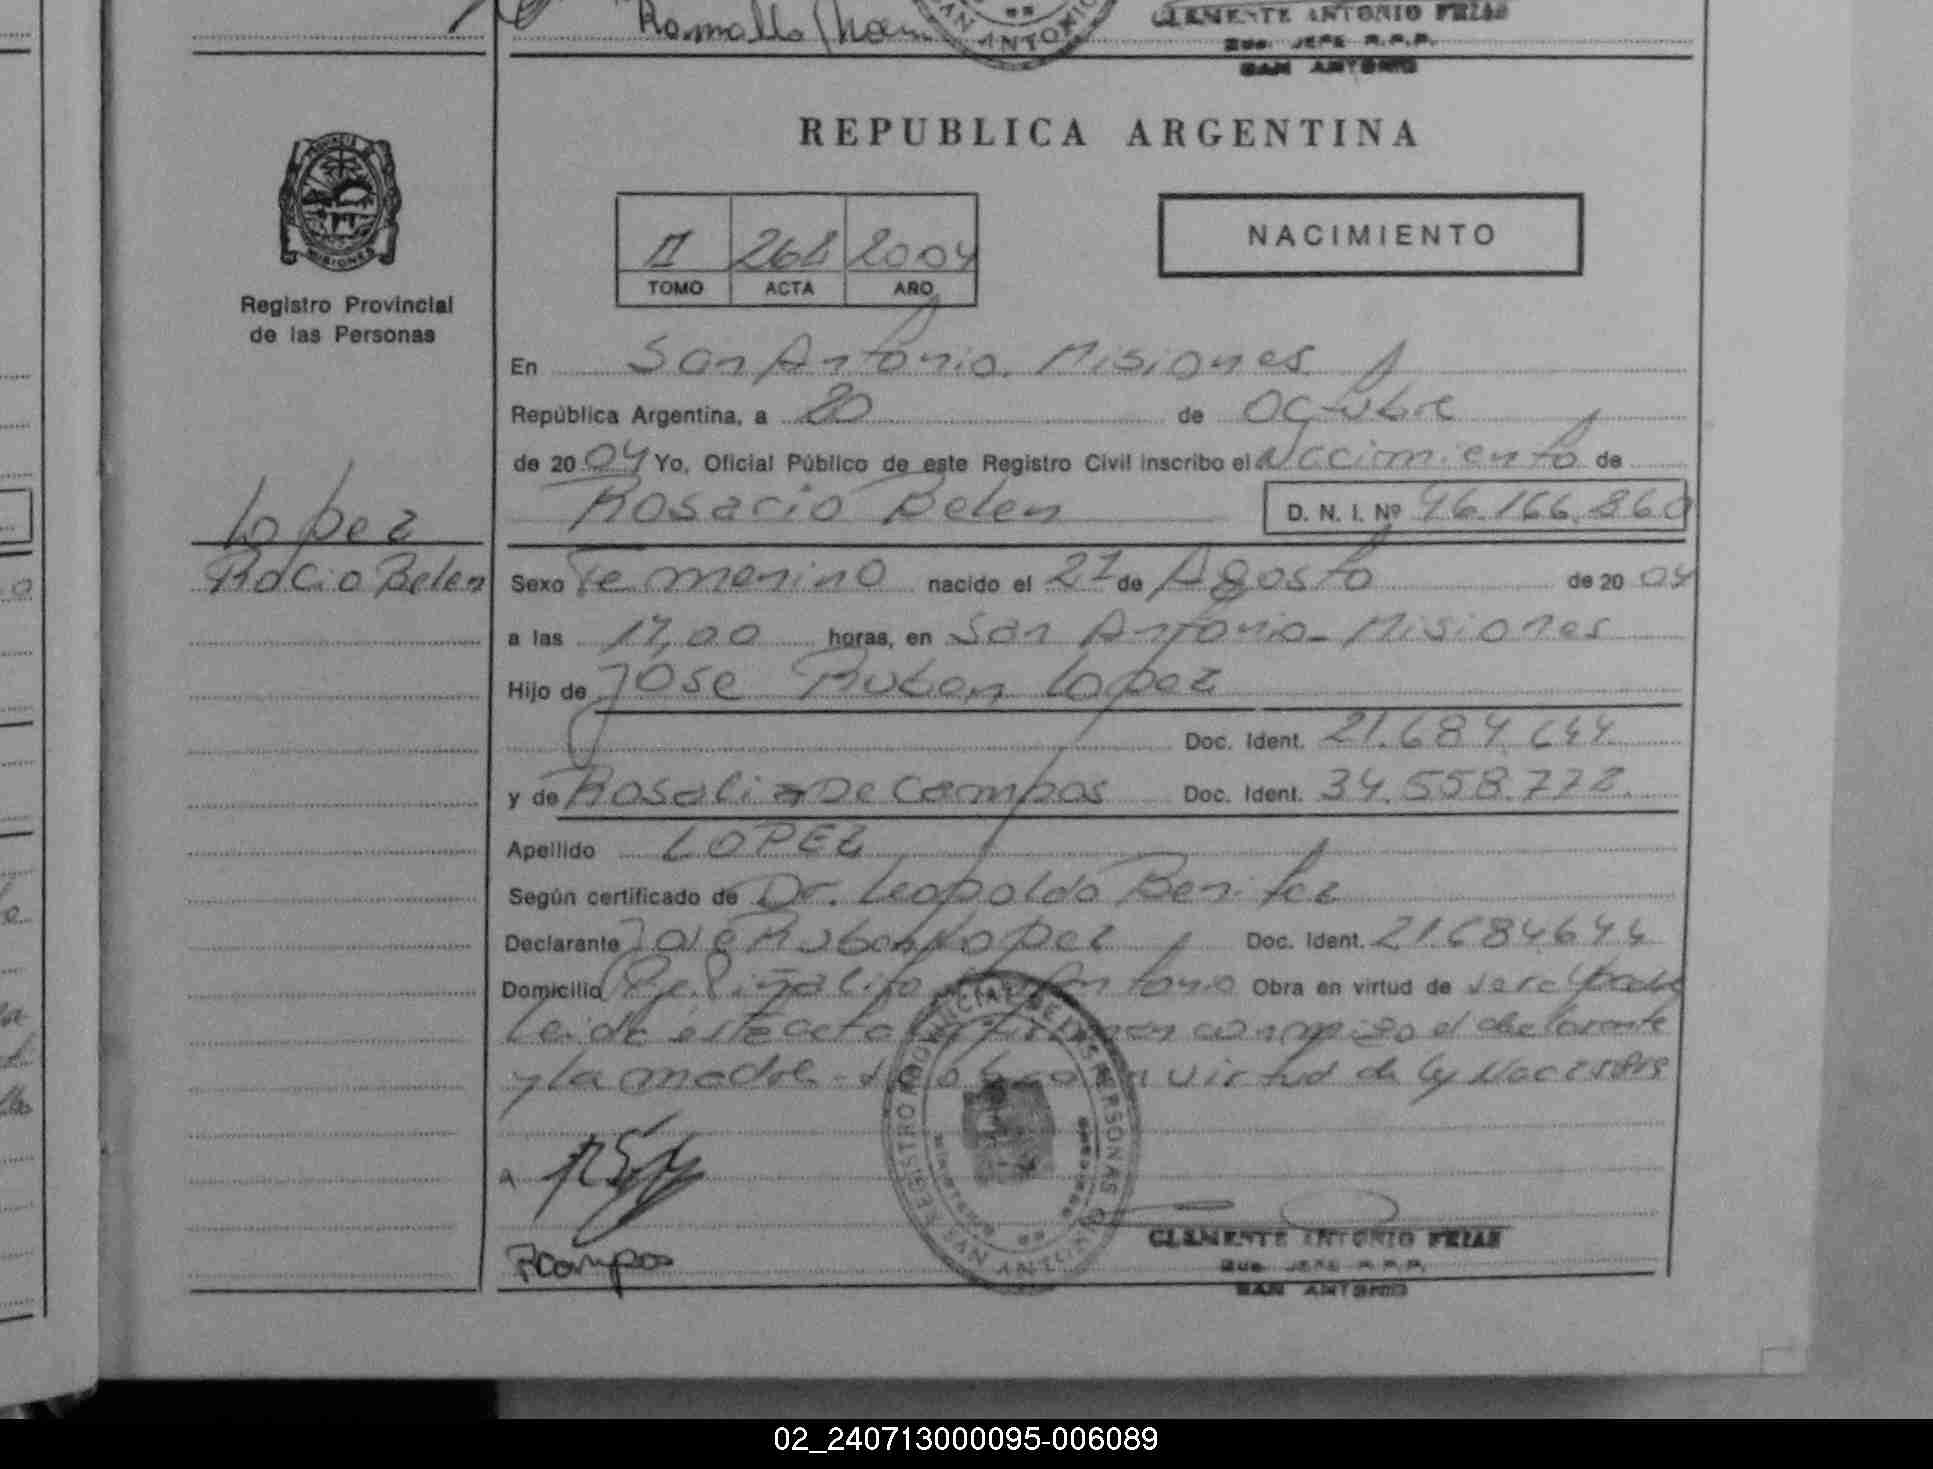 Ramallo Jhon
SAN ANTONIO
CLEMENTE ANTONIO FRIAS
Sub. JEFE R.P.P.
SAN ANTONIO
REPUBLICA ARGENTINA
PROVINCIA
MISIONES
Registro Provincial
de las Personas
II 268 2004
TOMO ACTA AÑO
NACIMIENTO
En San Antonio. Misiones
República Argentina, a 20 de Octubre
de 2004 Yo, Oficial Público de este Registro Civil inscribo el Nacimiento de
Rosario Belen D. N. I. Nº 46.166.860
Lopez
Rocio Belen
Sexo Femenino nacido el 27 de Agosto de 2004
a las 17,00 horas, en San Antonio - Misiones
Hijo de Jose Ruben Lopez
Doc. Ident. 21.684.644
y de Rosalia De Campos Doc. Ident. 34.558.772
Apellido LOPEZ
Según certificado de Dr. Leopoldo Benitez
Declarante Jose Ruben Lopez Doc. Ident. 21.684644
Domicilio Pje. Piñalito S. Antonio Obra en virtud de ser el padre
Leida este acta la firman conmigo el declarante
y la madre - virtud de ley
REGISTRO PROVINCIAL DE LAS PERSONAS
SAN ANTONIO
MISIONES
Rcampos
CLEMENTE ANTONIO FRIAS
Sub. JEFE R.P.P.
SAN ANTONIO
02_240713000095-006089